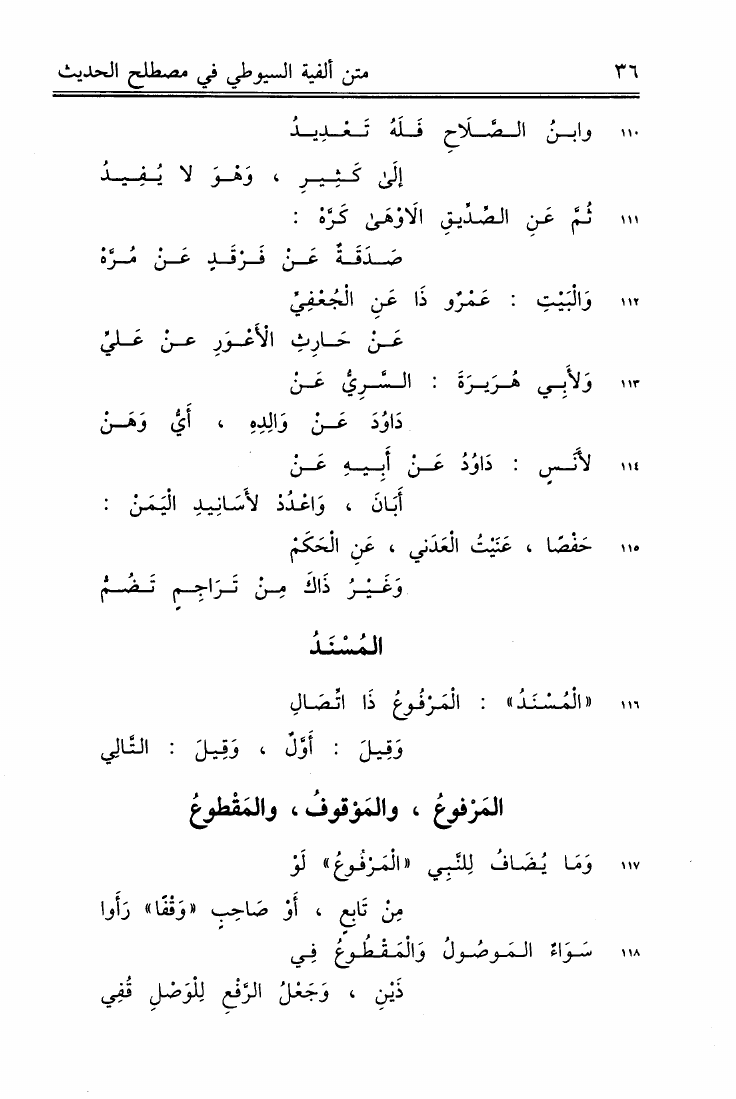 ٣٦ متن ألفية السيوطي في مصطلح الحديث
١١٠ وابنُ الصَّلَاحِ فَلَهُ تَعْدِيدُ
إِلَىٰ كَثِيرٍ ، وَهْوَ لَا يُفِيدُ
١١١ ثُمَّ عَنِ الصِّدِّيقِ الَاوْهَىٰ كَرَّهْ :
صَدَقَةٌ عَنْ فَرْقَدٍ عَنْ مُرَّهْ
١١٢ وَالْبَيْتِ : عَمْرٌو ذَا عَنِ الْجُعْفِيِّ
عَنْ حَارِثِ الْأَعْوَرِ عنْ عَلِيِّ
١١٣ وَلأَبِي هُرَيرَةَ : السَّرِيُّ عَنْ
دَاوُدَ عَنْ وَالِدِهِ ، أَيُّ وَهَنْ
١١٤ لأَنَسٍ : دَاوُدُ عَنْ أَبِيهِ عَنْ
أَبَانَ ، وَاعْدُدْ لأَسَانِيدِ الْيَمَنْ :
١١٥ حَفْصًا ، عَنَيْتُ الْعَدَني ، عَنِ الْحَكَمْ
وَغَيْرُ ذَاكَ مِنْ تَرَاجِمٍ تَضُمُّ
المُسْنَدُ
١١٦ «الْمُسْنَدُ» : الْمَرْفُوعُ ذَا اتِّصَالِ
وَقِيلَ : أَوَّلٌ ، وَقِيلَ : التَّالِي
المَرْفوعُ ، والمَوْقوفُ ، والمَقْطوعُ
١١٧ وَمَا يُضَافُ لِلنَّبِي «الْمَرْفُوعُ» لَوْ
مِنْ تَابِعٍ ، أَوْ صَاحِبٍ «وَقْفًا» رَأَوا
١١٨ سَوَاءٌ المَوصُولُ وَالْمَقْطُوعُ فِي
ذَيْنِ ، وَجَعْلُ الرَّفْعِ لِلْوَصْلِ قُفِي